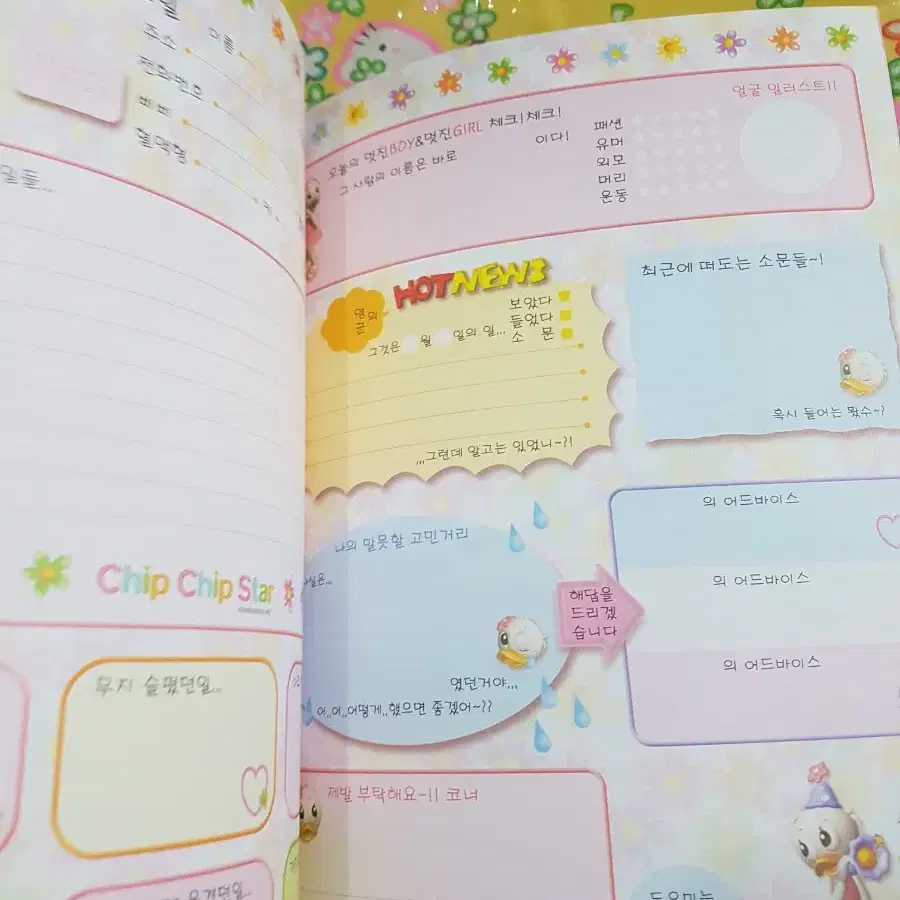 이름
주소
전화번호
삐삐
혈액형
키
말들...
Chip Chip Star
무지 슬펐던일...
웃겼던일...
얼굴 일러스트!!
오늘의 멋진BOY&멋진GIRL 체크!체크!
그 사람의 이름은 바로 이다!
패션
유머
외모
머리
운동
HOTNEWS
양
군
의
보았다
들었다
소 문
그것은 월 일의 일...
,,,그런데 알고는 있었니~?!
최근에 떠도는 소문들~!
혹시 들어는 봤수~?
나의 말못할 고민거리
사실은...
였던거야,,,
어,,어,,어떻게,,했으면 좋겠어~??
해답을
드리겠
습니다
의 어드바이스
의 어드바이스
의 어드바이스
제발 부탁해요~!! 코너